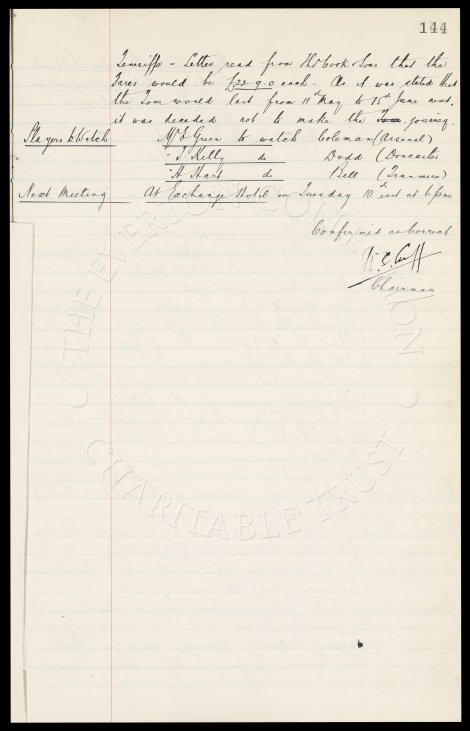 144
Teneriffe - Letter read from Ths Cook & Sons that the
Fares would be £22-9-0 each. As it was stated that
the Tour would last from 11th May to 15th June next,
it was decided not to make the Tour journey.
Players to Watch Mr E Green to watch Coleman (Arsenal)
" T. Kelly do Dodd (Doncaster
" H Hart do Bell (Tranmere)
Next Meeting At Exchange Hotel on Tuesday 10th inst at 6 pm
Confirmed as Correct
W. C. Cuff
Chairman
THE EVERTON COLLECTION
CHARITABLE TRUST